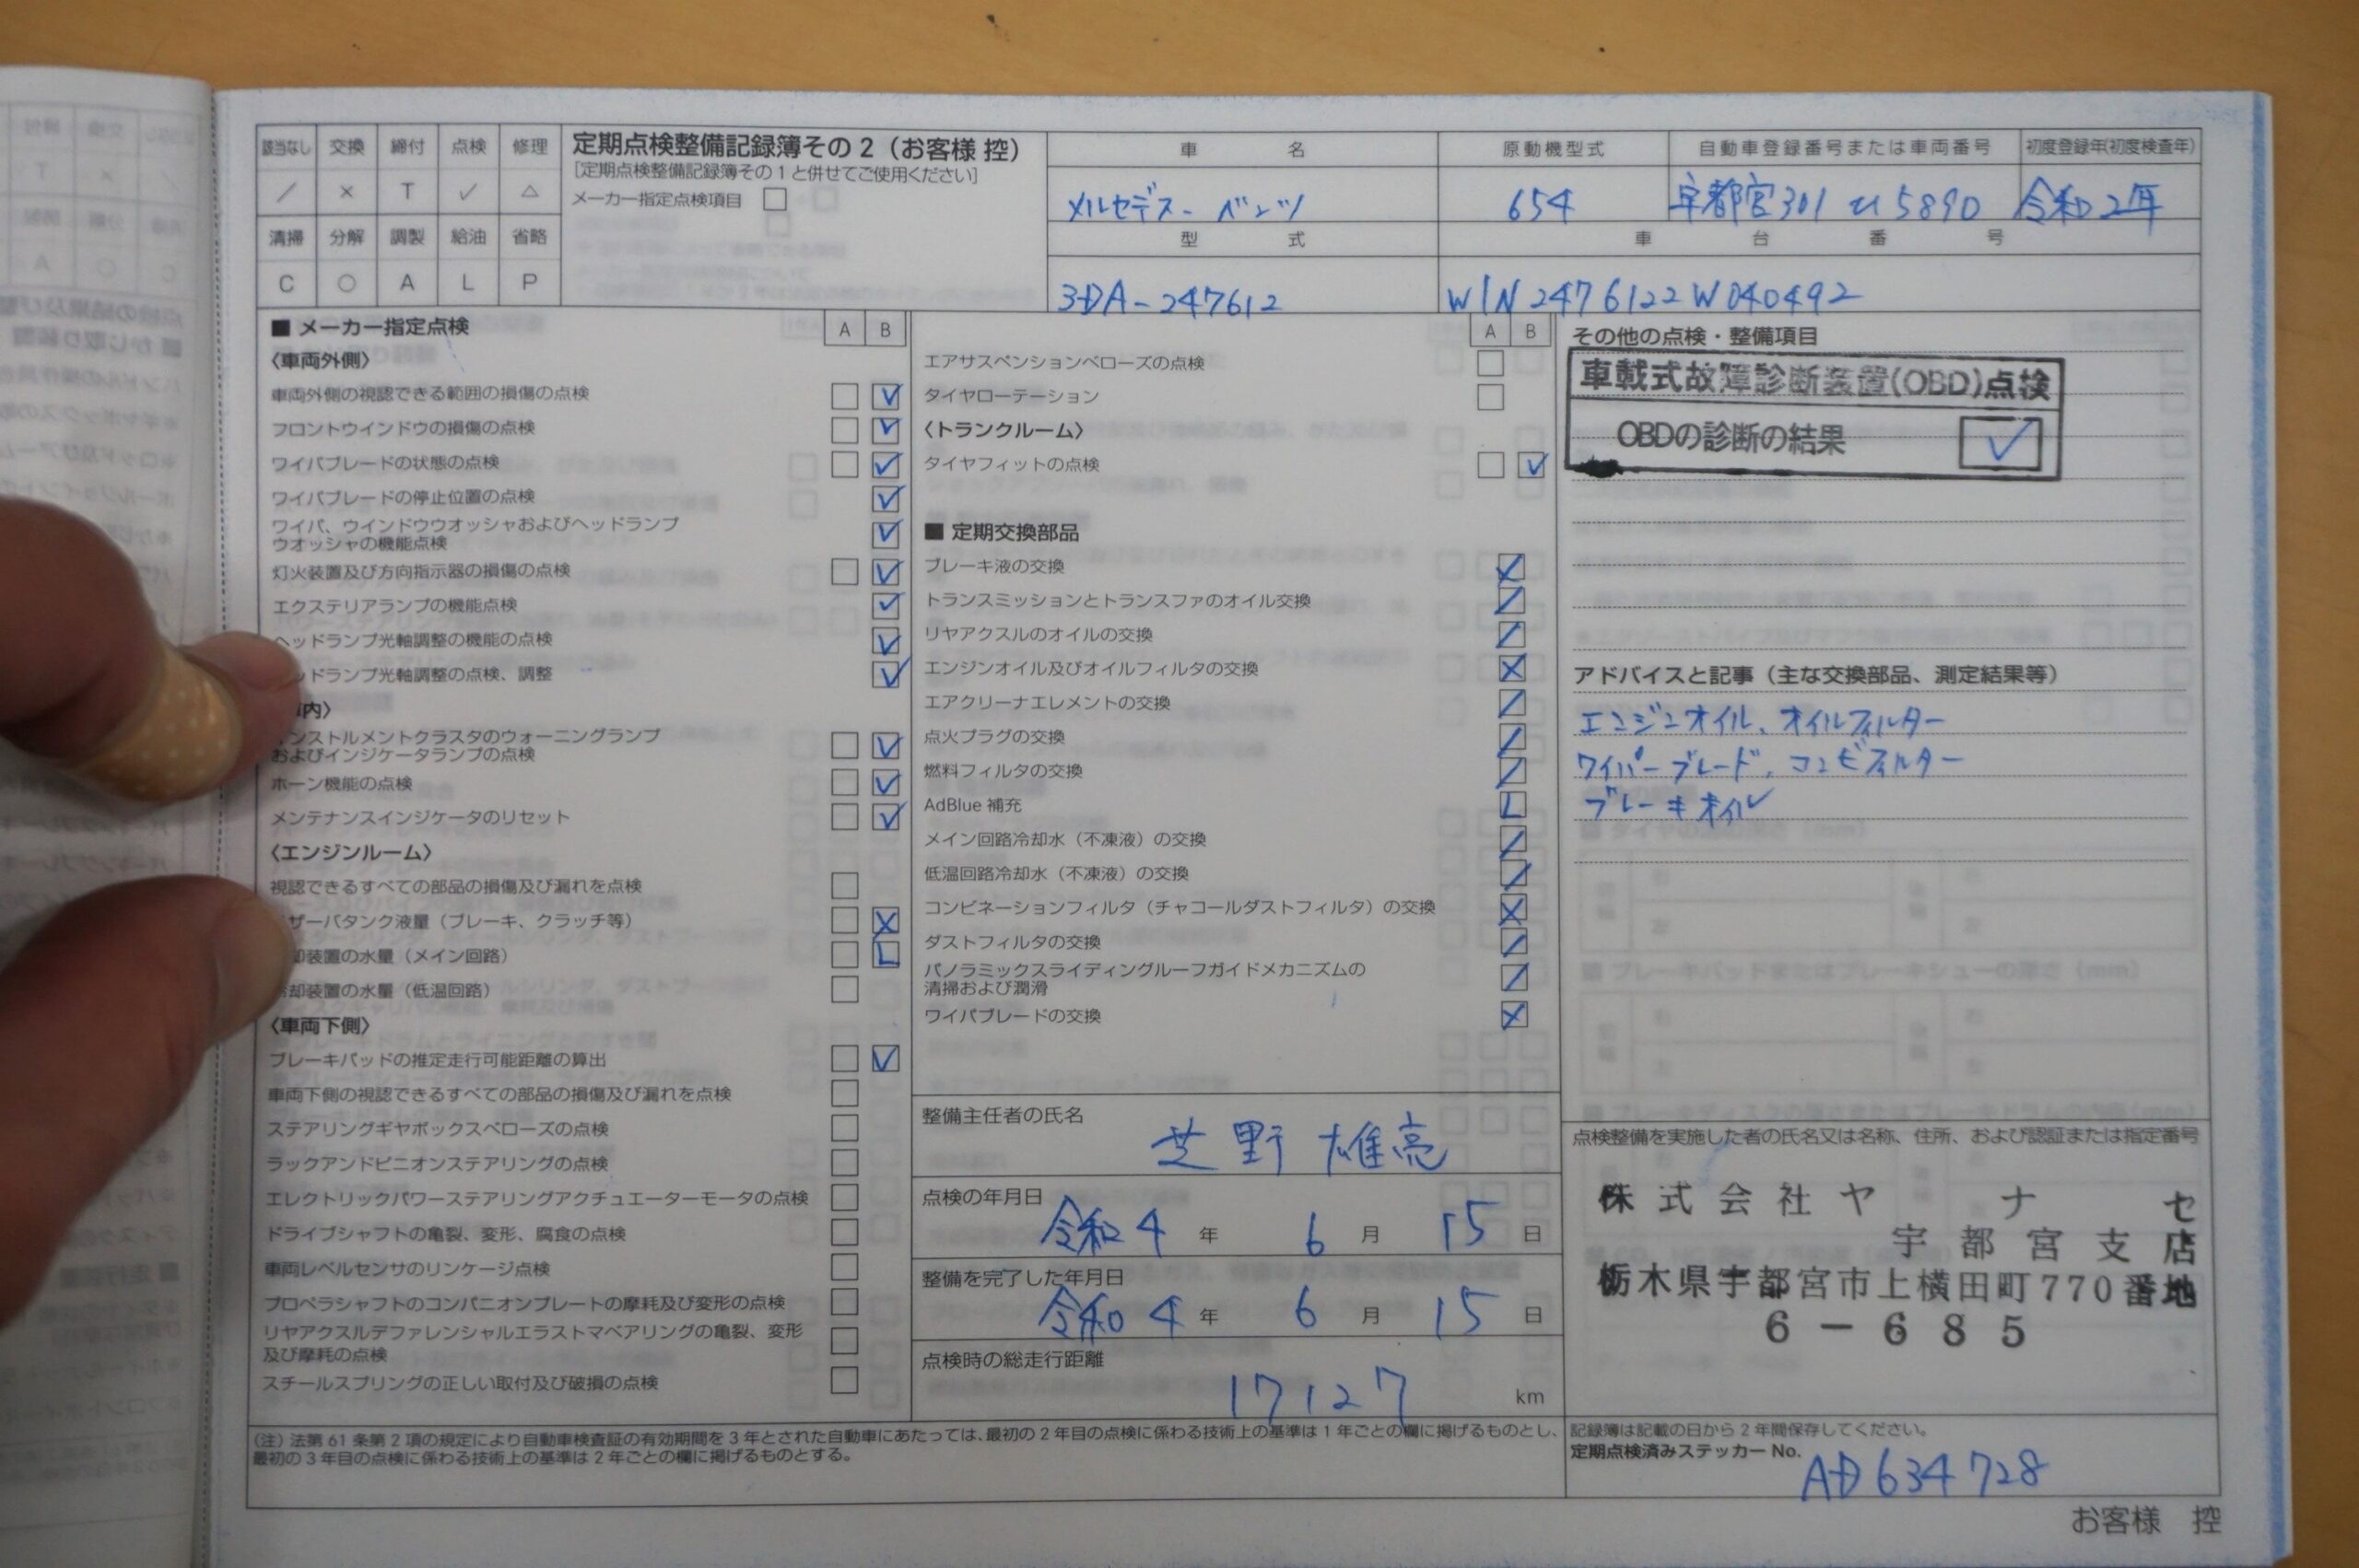 該当なし 交換 締付 点検 修理
／ × T ✓ △
清掃 分解 調製 給油 省略
C ○ A L P
定期点検整備記録簿その2（お客様 控）
［定期点検整備記録簿その1と併せてご使用ください］
メーカー指定点検項目 □
車名 原動機型式 自動車登録番号または車両番号 初度登録年(初度検査年)
メルセデス-ベンツ 654 宇都宮301 5890 令和2年
型式 車台番号
3DA-247612 W1N2476122W040492
■ メーカー指定点検 A B
〈車両外側〉
車両外側の視認できる範囲の損傷の点検 □ ✓
フロントウインドウの損傷の点検 □ ✓
ワイパブレードの状態の点検 □ ✓
ワイパブレードの停止位置の点検 ✓
ワイパ、ウインドウウオッシャおよびヘッドランプ
ウオッシャの機能点検 ✓
灯火装置及び方向指示器の損傷の点検 □ ✓
エクステリアランプの機能点検 ✓
ヘッドランプ光軸調整の機能の点検 ✓
ドランプ光軸調整の点検、調整 ✓
内〉
ンストルメントクラスタのウォーニングランプ
およびインジケータランプの点検 □ ✓
ホーン機能の点検 □ ✓
メンテナンスインジケータのリセット □ ✓
〈エンジンルーム〉
視認できるすべての部品の損傷及び漏れを点検 □
ザーバタンク液量（ブレーキ、クラッチ等） □ ×
却装置の水量（メイン回路） □ L
冷却装置の水量（低温回路） □
〈車両下側〉
ブレーキパッドの推定走行可能距離の算出 □ ✓
車両下側の視認できるすべての部品の損傷及び漏れを点検 □
ステアリングギヤボックスベローズの点検 □
ラックアンドピニオンステアリングの点検 □
エレクトリックパワーステアリングアクチュエーターモータの点検 □
ドライブシャフトの亀裂、変形、腐食の点検 □
車両レベルセンサのリンケージ点検 □
プロペラシャフトのコンパニオンプレートの摩耗及び変形の点検 □
リヤアクスルデファレンシャルエラストマベアリングの亀裂、変形
及び摩耗の点検 □
スチールスプリングの正しい取付及び破損の点検 □
A B
エアサスペンションベローズの点検 □
タイヤローテーション □
〈トランクルーム〉
タイヤフィットの点検 □ ✓
■ 定期交換部品
ブレーキ液の交換 ×
トランスミッションとトランスファのオイル交換 ／
リヤアクスルのオイルの交換 ／
エンジンオイル及びオイルフィルタの交換 ×
エアクリーナエレメントの交換 ／
点火プラグの交換 ／
燃料フィルタの交換 ／
AdBlue 補充 L
メイン回路冷却水（不凍液）の交換 ／
低温回路冷却水（不凍液）の交換 ／
コンビネーションフィルタ（チャコールダストフィルタ）の交換 ×
ダストフィルタの交換 ／
パノラミックスライディングルーフガイドメカニズムの
清掃および潤滑 ／
ワイパブレードの交換 ×
整備主任者の氏名
芝野 雄亮
点検の年月日
令和4年 6月 15日
整備を完了した年月日
令和4年 6月 15日
点検時の総走行距離
17127 km
その他の点検・整備項目
車載式故障診断装置(OBD)点検
OBDの診断の結果 ✓
アドバイスと記事（主な交換部品、測定結果等）
エンジンオイル、オイルフィルター
ワイパーブレード、コンビフィルター
ブレーキオイル
点検整備を実施した者の氏名又は名称、住所、および認証または指定番号
株式会社ヤナセ
宇都宮支店
栃木県宇都宮市上横田町770番地
6-685
（注）法第61条第2項の規定により自動車検査証の有効期間を3年とされた自動車にあたっては、最初の2年目の点検に係わる技術上の基準は1年ごとの欄に掲げるものとし、
最初の3年目の点検に係わる技術上の基準は2年ごとの欄に掲げるものとする。
記録簿は記載の日から2年間保存してください。
定期点検済みステッカーNo.
AD634728
お客様 控